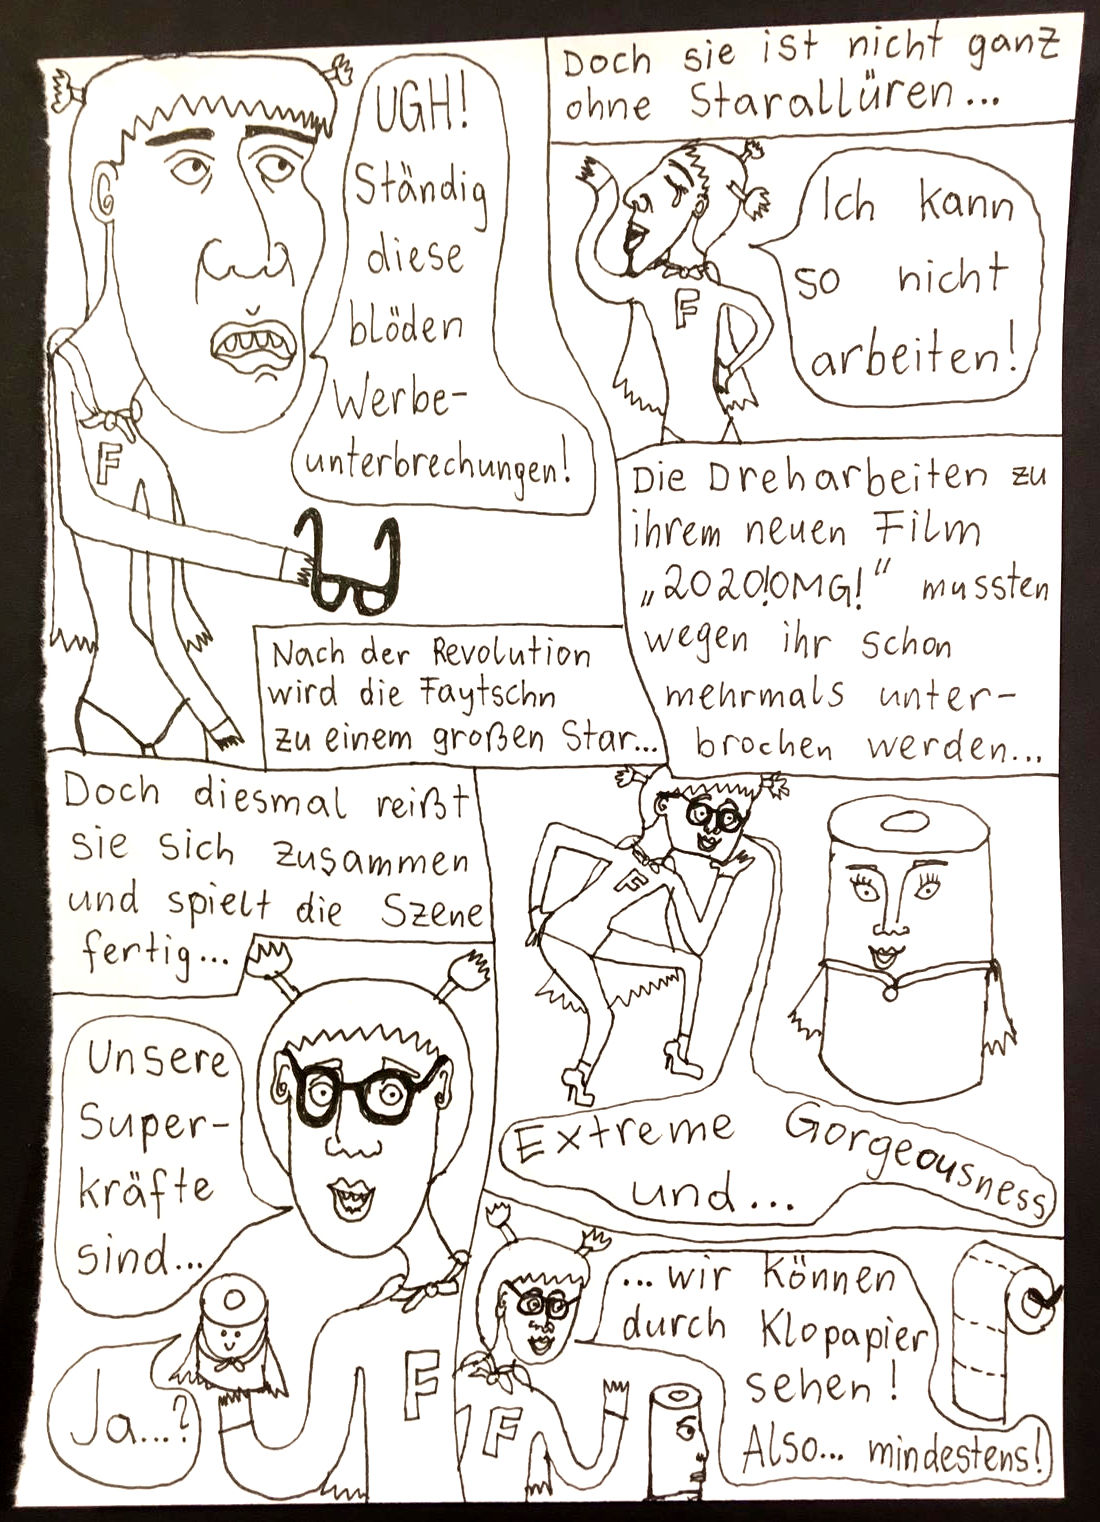 UGH!
Ständig
diese
blöden
Werbe-
unterbrechungen!
F
Nach der Revolution
wird die Faytschn
zu einem großen Star...
Doch sie ist nicht ganz
ohne Starallüren...
Ich kann
so nicht
arbeiten!
F
Die Dreharbeiten zu
ihrem neuen Film
„2020!OMG!“ mussten
wegen ihr schon
mehrmals unter-
brochen werden...
Doch diesmal reißt
sie sich zusammen
und spielt die Szene
fertig...
Unsere
Super-
kräfte
sind...
Ja...?
F
F
Extreme Gorgeousness
und...
...wir können
durch Klopapier
sehen!
Also... mindestens!
F